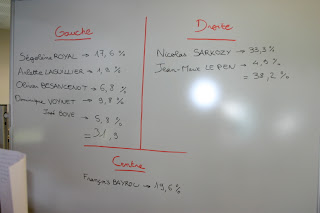 Gauche
Ségolène ROYAL → 17,6 %
Arlette LAGUILLIER → 1,8 %
Olivier BESANCENOT → 5,8 %
Dominique VOYNET → 9,8 %
José BOVE → 5,8 %
= 31,9
Droite
Nicolas SARKOZY → 33,3%
Jean-Marie LE PEN → 4,9 %
= 38,2 %
Centre
François BAYROU → 19,6 %